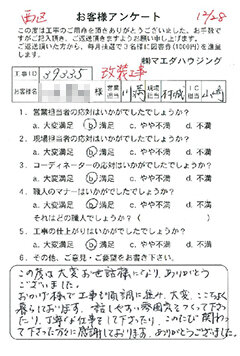 西区 お客様アンケート 12/28
この度は工事のご用命を頂きありがとうございました。お手数で
すがご記入頂き、ご返送頂きますようお願い申し上げます。
ご返送頂いた方から、毎月抽選で3名様に図書券(1000円)を進呈
します。
㈱マエダハウジング
工事ID 39335 改装工事
お客様名 様 営業担当 川満 現場担当 IC担当
1. 営業担当者の応対はいかがでしたでしょうか?
a. 大変満足 b. 満足 c. やや不満 d. 不満
2. 現場担当者の応対はいかがでしたでしょうか?
a. 大変満足 b. 満足 c. やや不満 d. 不満
3. コーディネーターの応対はいかがでしたでしょうか?
a. 大変満足 b. 満足 c. やや不満 d. 不満
4. 職人のマナーはいかがでしたでしょうか?
a. 大変満足 b. 満足 c. やや不満 d. 不満
それはどの職人でしょうか?( )
5. 工事の仕上がりはいかがでしたでしょうか?
a. 大変満足 b. 満足 c. やや不満 d. 不満
6. その他、ご意見・ご要望をお書き下さい。
この度は大変お世話様になり、ありがとう
ございました。
おかげ様で工事も順調に進み、大変、ここちよく
暮らしております。話しやすい雰囲気をつくって下さっ
たり、丁寧な仕事をして下さったり、このたび関わっ
て下さった方に感謝しております。ありがとうございました。